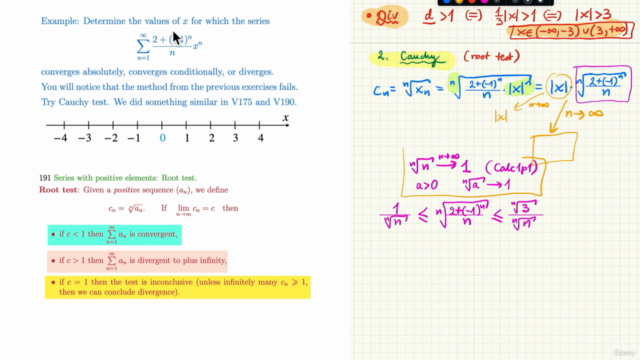 Example: Determine the values of x for which the series
∞
∑ (2 + (−1)ⁿ)/n xⁿ
n=1
converges absolutely, converges conditionally, or diverges.
You will notice that the method from the previous exercises fails.
Try Cauchy test. We did something similar in V175 and V190.
x
−4 −3 −2 −1 0 1 2 3 4
191 Series with positive elements: Root test.
Root test: Given a positive sequence (aₙ), we define
cₙ = ⁿ√aₙ. If lim n→∞ cₙ = c then
• if c < 1 then ∑ n=1 ∞ aₙ is convergent,
• if c > 1 then ∑ n=1 ∞ aₙ is divergent to plus infinity,
• if c = 1 then the test is inconclusive (unless infinitely many cₙ ⩾ 1,
then we can conclude divergence).
• Div d > 1 (=) 1/3|x| > 1 (=) |x| > 3
x ∈ (−∞, −3) ∪ (3, +∞)
2. Cauchy (root test)
cₙ = ⁿ√xₙ = ⁿ√((2+(−1)ⁿ)/n · |x|ⁿ) = |x| · ⁿ√((2+(−1)ⁿ)/n)
|x| n→∞ n→∞
ⁿ√n n→∞ → 1 (Calc1p1)
a>0 ⁿ√a → 1
1/ⁿ√n ≤ ⁿ√((2+(−1)ⁿ)/n) ≤ ⁿ√3/ⁿ√n